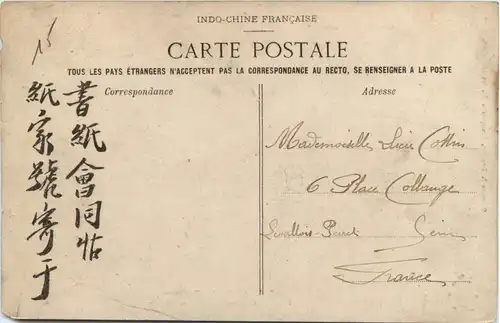 INDO-CHINE FRANÇAISE
15
CARTE POSTALE
TOUS LES PAYS ÉTRANGERS N'ACCEPTENT PAS LA CORRESPONDANCE AU RECTO, SE RENSEIGNER A LA POSTE
Correspondance
書紙會同帖
紙家號寄于
Adresse
Mademoiselle Lucie Collins
6 Place Collange
Levallois-Perret Seine
France